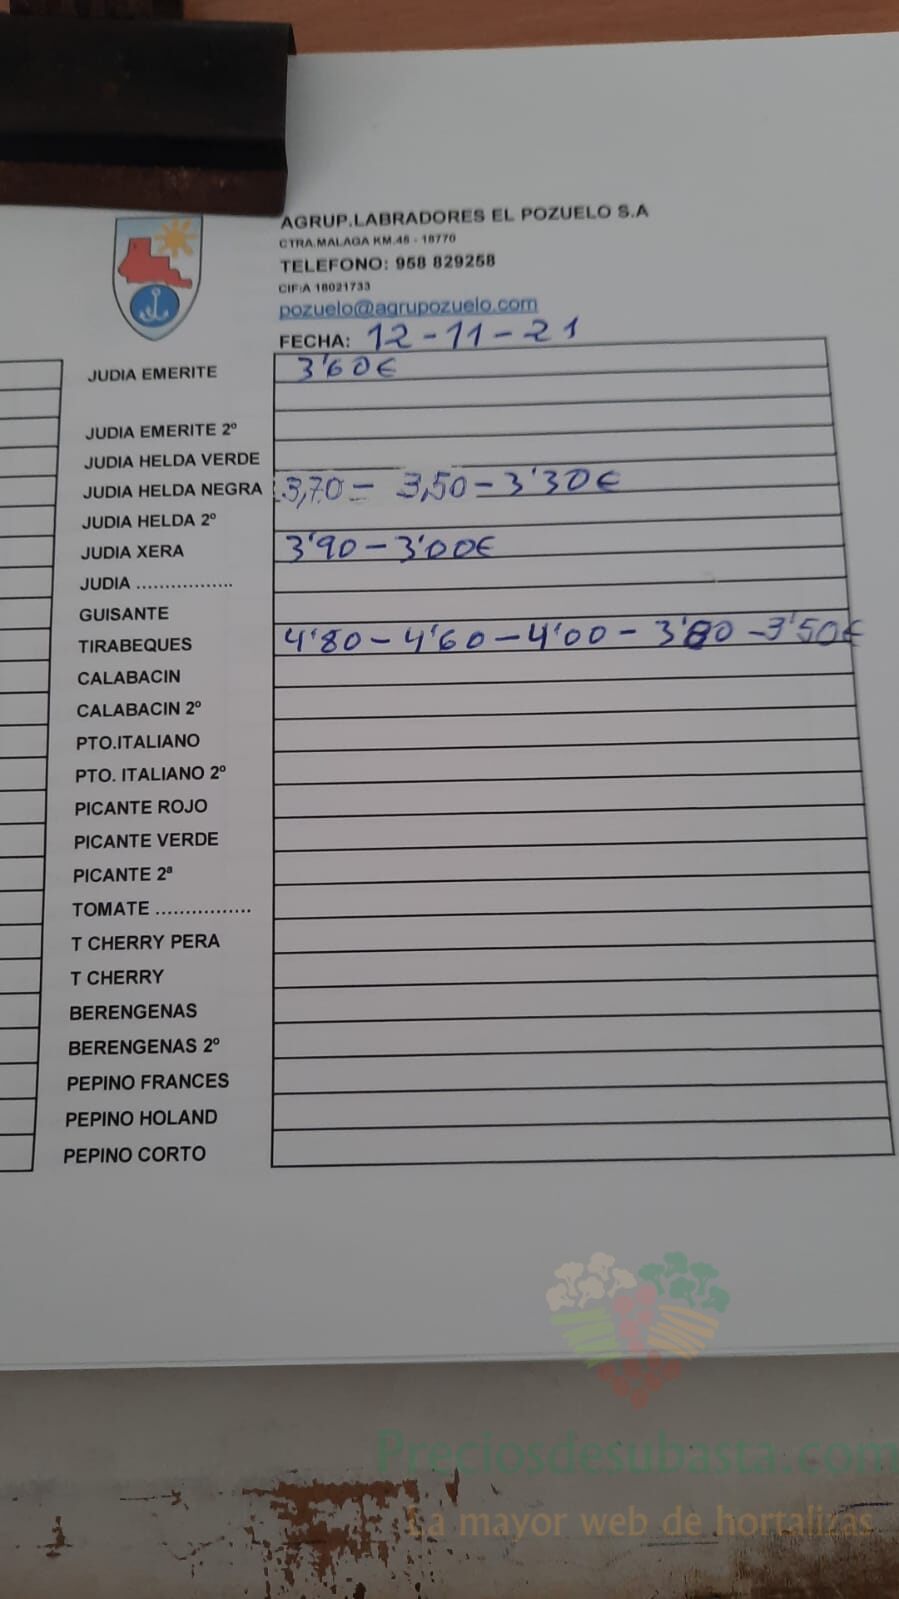 AGRUP.LABRADORES EL POZUELO S.A
CTRA.MALAGA KM.46 - 18770
TELEFONO: 958 829258
CIF:A 18021733
pozuelo@agrupozuelo.com
FECHA: 12-11-21
JUDIA EMERITE 3'60€
JUDIA EMERITE 2º
JUDIA HELDA VERDE
JUDIA HELDA NEGRA 3,70 - 3,50 - 3'30€
JUDIA HELDA 2º
JUDIA XERA 3'90 - 3'00€
JUDIA .................
GUISANTE
TIRABEQUES 4'80 - 4'60 - 4'00 - 3'80 - 3'50€
CALABACIN
CALABACIN 2º
PTO.ITALIANO
PTO. ITALIANO 2º
PICANTE ROJO
PICANTE VERDE
PICANTE 2ª
TOMATE ................
T CHERRY PERA
T CHERRY
BERENGENAS
BERENGENAS 2º
PEPINO FRANCES
PEPINO HOLAND
PEPINO CORTO
Preciosdesubasta.com
La mayor web de hortalizas